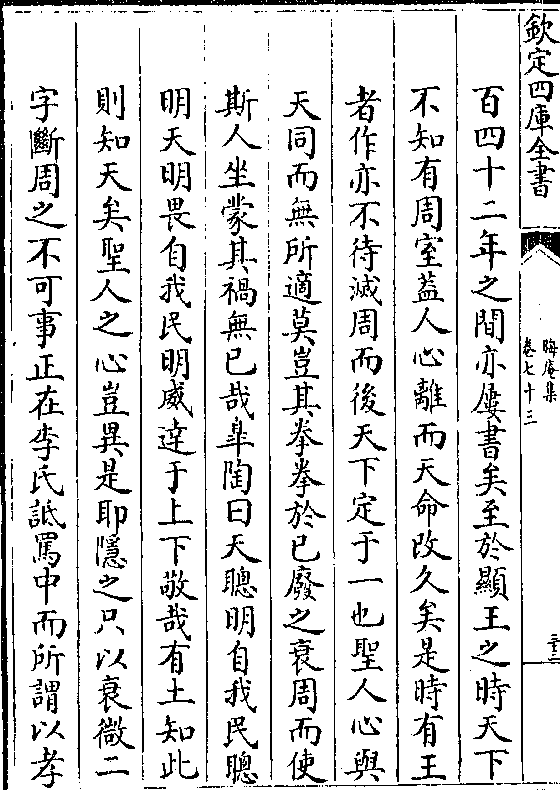 欽定四庫全書
晦庵集
卷七十三
三十三
百四十二年之間亦屢書矣至於顯王之時天下
不知有周室蓋人心離而天命改久矣是時有王
者作亦不待滅周而後天下定于一也聖人心與
天同而無所適莫豈其拳拳於已廢之衰周而使
斯人坐蒙其禍無已哉臯陶曰天聰明自我民聰
明天明畏自我民明威達于上下敬哉有土知此
則知天矣聖人之心豈異是耶隱之只以衰微二
字斷周之不可事正在李氏詆罵中而所謂以孝